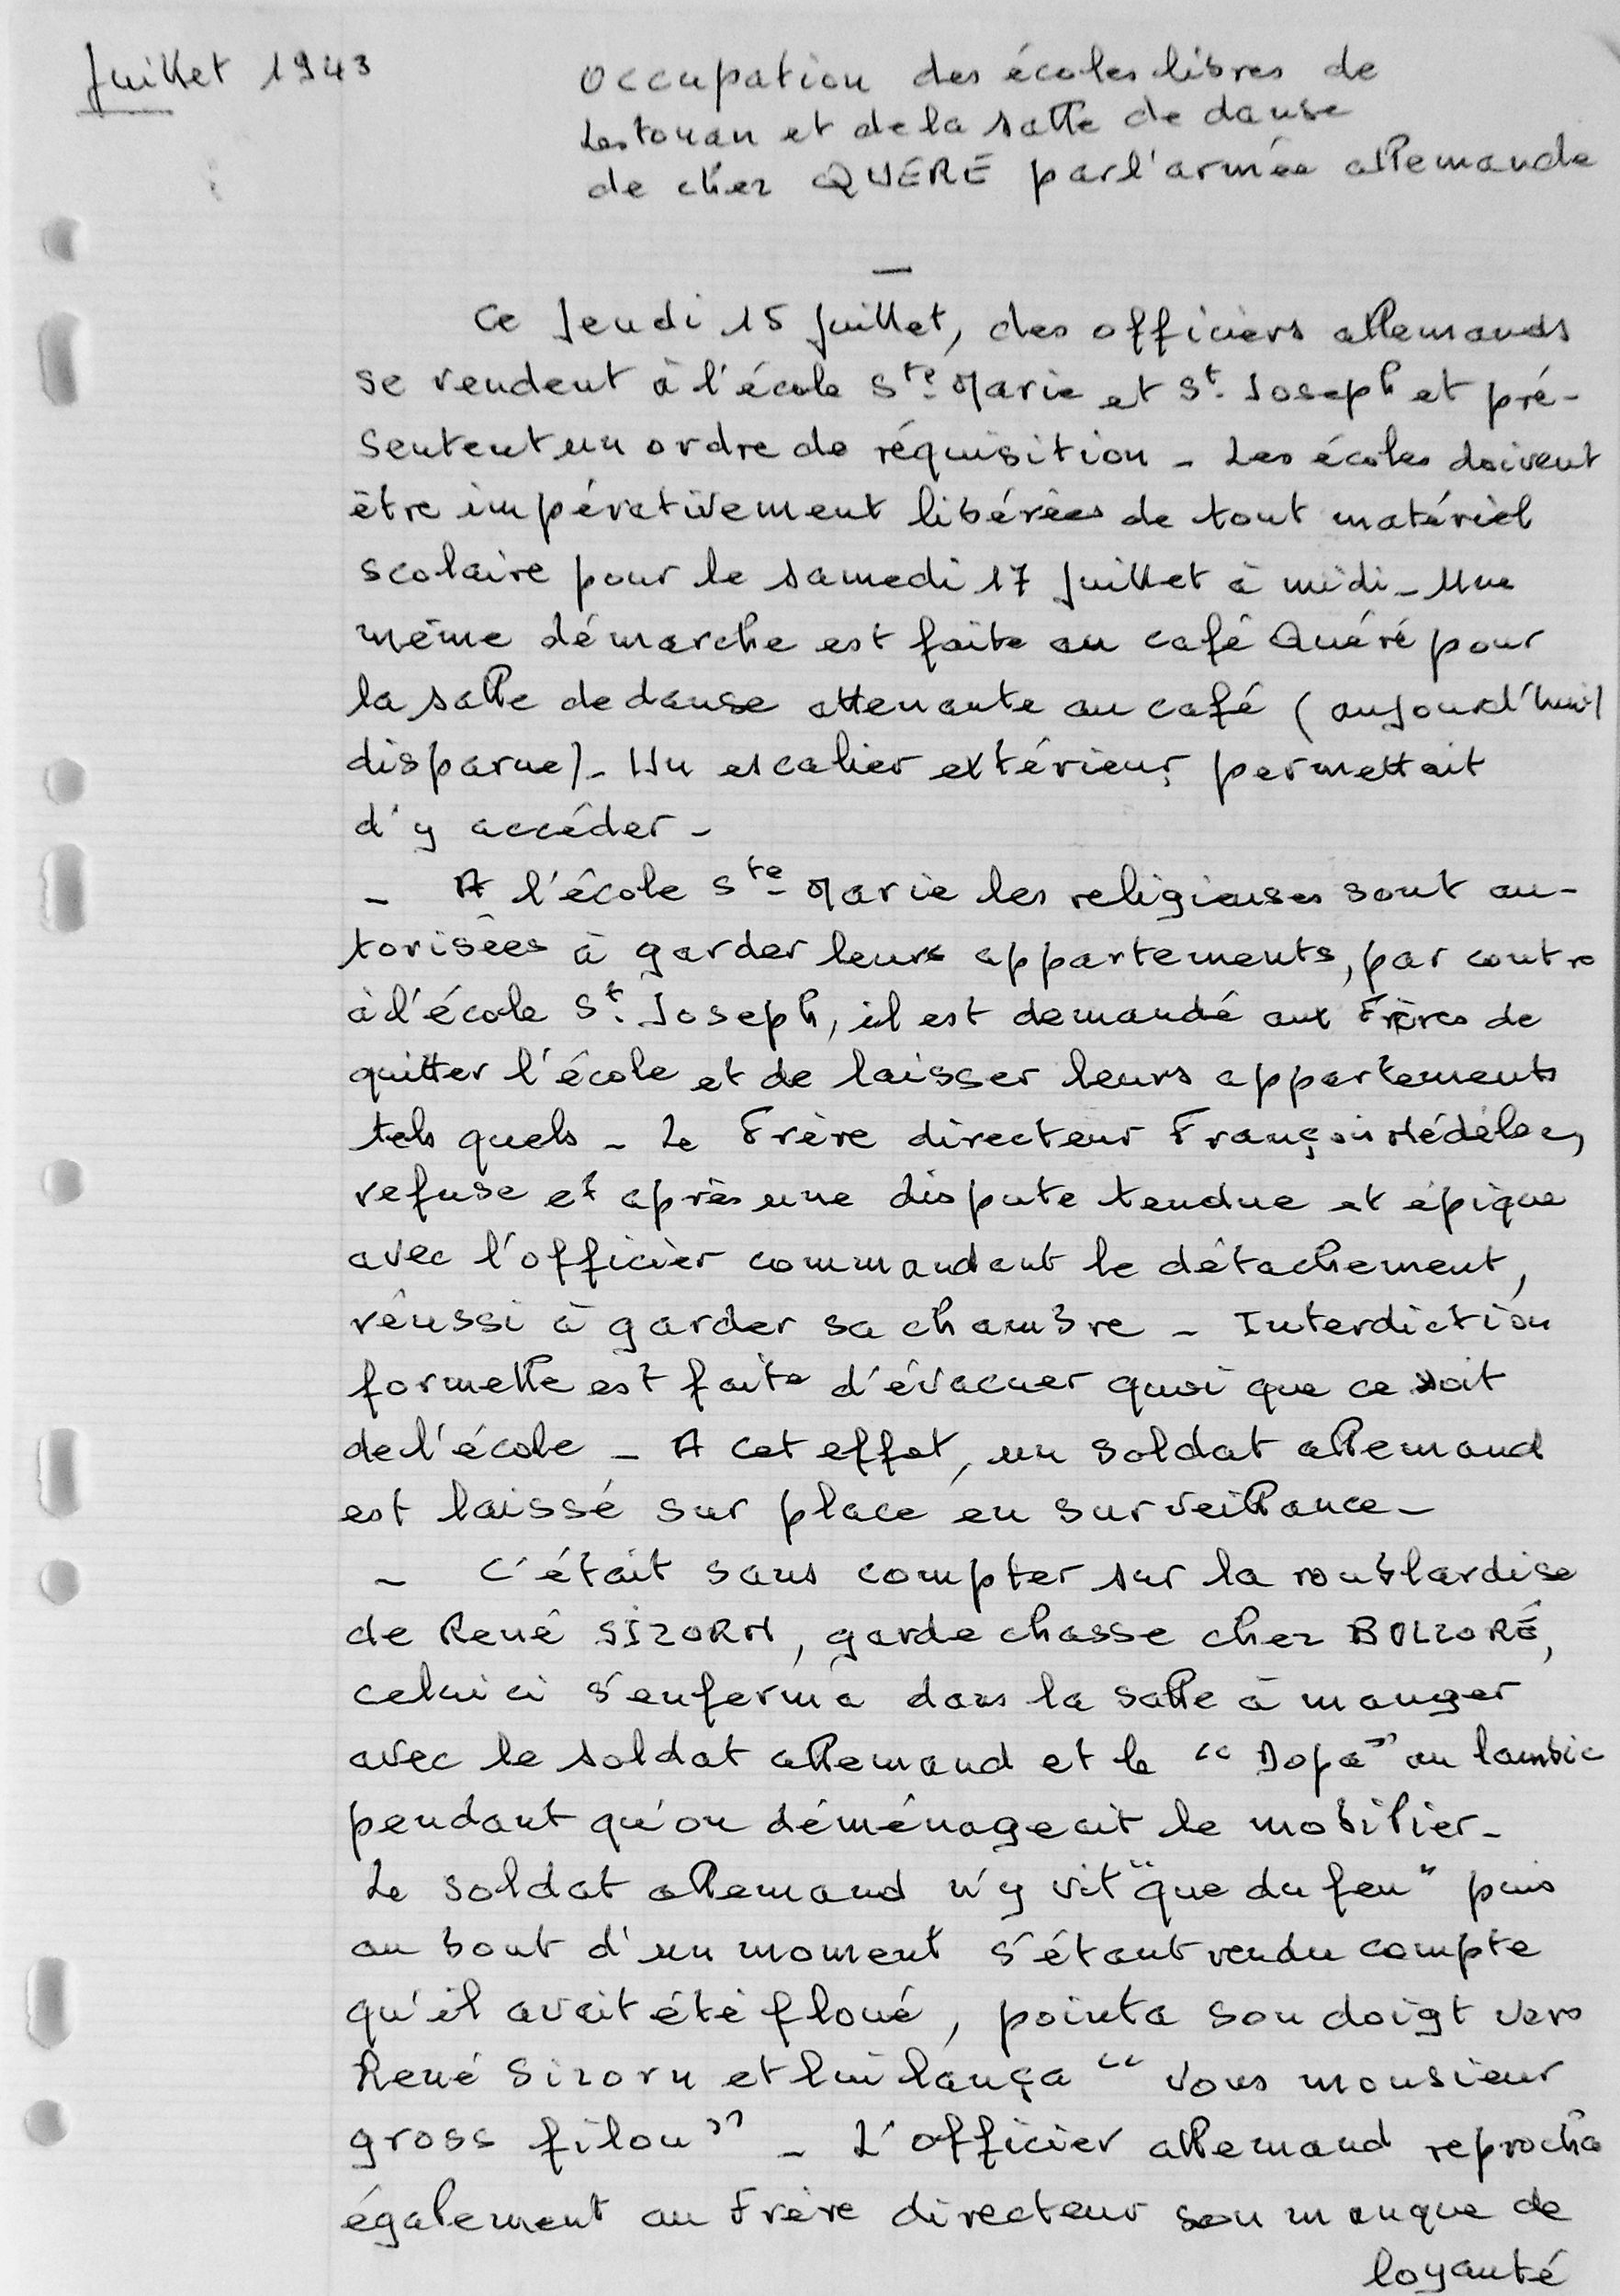 Juillet 1943
Occupation des écoles libres de
Lestonan et de la salle de danse
de chez QUÉRÉ par l'armée allemande
—
Ce Jeudi 15 Juillet, des officiers allemands
se rendent à l'école Ste Marie et St. Joseph et pré-
sentent un ordre de réquisition - Les écoles doivent
être impérativement libérées de tout matériel
scolaire pour le samedi 17 Juillet à midi - Une
même démarche est faite au café Quéré pour
la salle de danse attenante au café (aujourd'hui
disparue) - Un escalier extérieur permettait
d'y accéder -
- A l'école Ste Marie les religieuses sont au-
torisées à garder leurs appartements, par contre
à l'école St. Joseph, il est demandé aux Frères de
quitter l'école et de laisser leurs appartements
tels quels - Le Frère directeur François Hédélec,
refuse et après une dispute tendue et épique
avec l'officier commandant le détachement,
réussi à garder sa chambre - Interdiction
formelle est faite d'évacuer quoi que ce soit
de l'école - A cet effet, un soldat allemand
est laissé sur place en surveillance -
- C'était sans compter sur la roublardise
de René SIZORN, garde chasse chez BOLLORÉ,
celui ci s'enferma dans la salle à manger
avec le soldat allemand et le "Dopa" au lambic
pendant qu'on déménageait le mobilier -
Le soldat allemand n'y vit "que du feu" puis
au bout d'un moment s'étant rendu compte
qu'il avait été floué, pointa son doigt vers
René Sizorn et lui lança "Vous monsieur
gross filou" - L'officier allemand reprocha
également au Frère directeur son manque de
loyauté